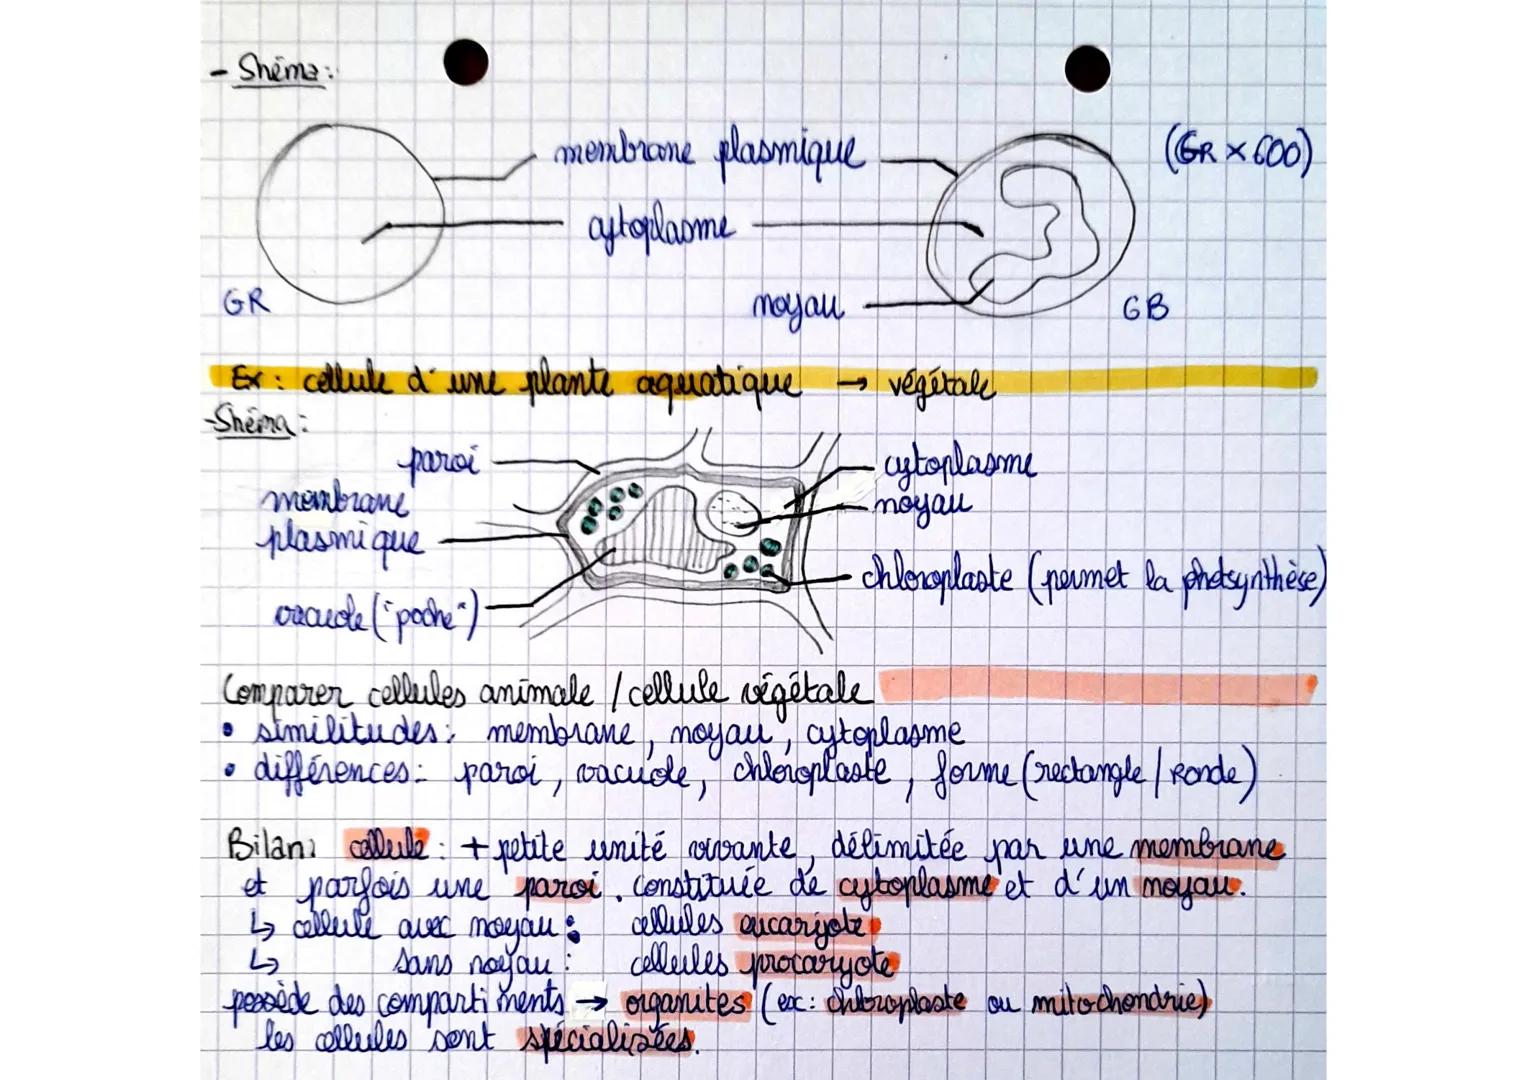 - Shéma :
membrane plasmique
(GR x 600)
cytoplasme
GR
noyau
GB
Ex : cellule d'une plante aquatique → végétale
- Shéma :
paroi
cytoplasme
membrane
noyau
plasmique
chloroplaste (permet la photsynthèse)
vacuole ("poche")
Comparer cellules animale / cellule végétale
• similitudes : membrane, noyau, cytoplasme
• différences : paroi, vacuole, chloroplaste, forme (rectangle / Ronde)
Bilan : cellule : + petite unité vivante, délimitée par une membrane
et parfois une paroi. Constituée de cytoplasme et d'un noyau.
↳ cellule avec noyau : cellules eucaryote
↳ sans noyau : cellules procaryote
possède des compartiments → organites (ex : chloroplaste ou mitochondrie)
les cellules sont spécialisées.